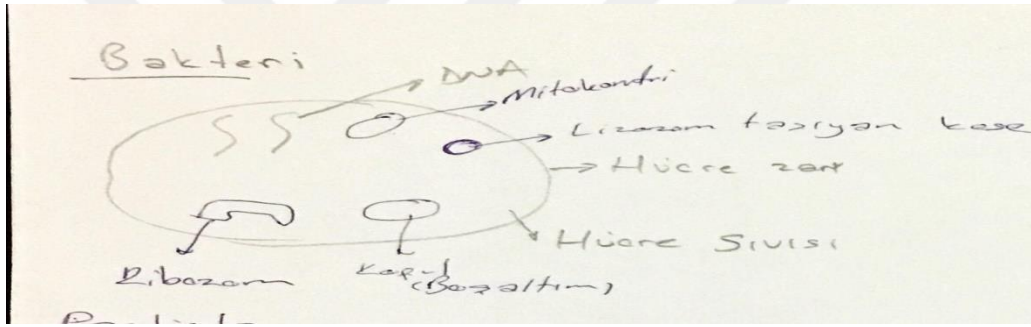 Bakteri
DNA
Mitokondri
Lizozom taşıyan kese
Hücre zarı
Hücre Sıvısı
Ribozom
(Boşaltım)